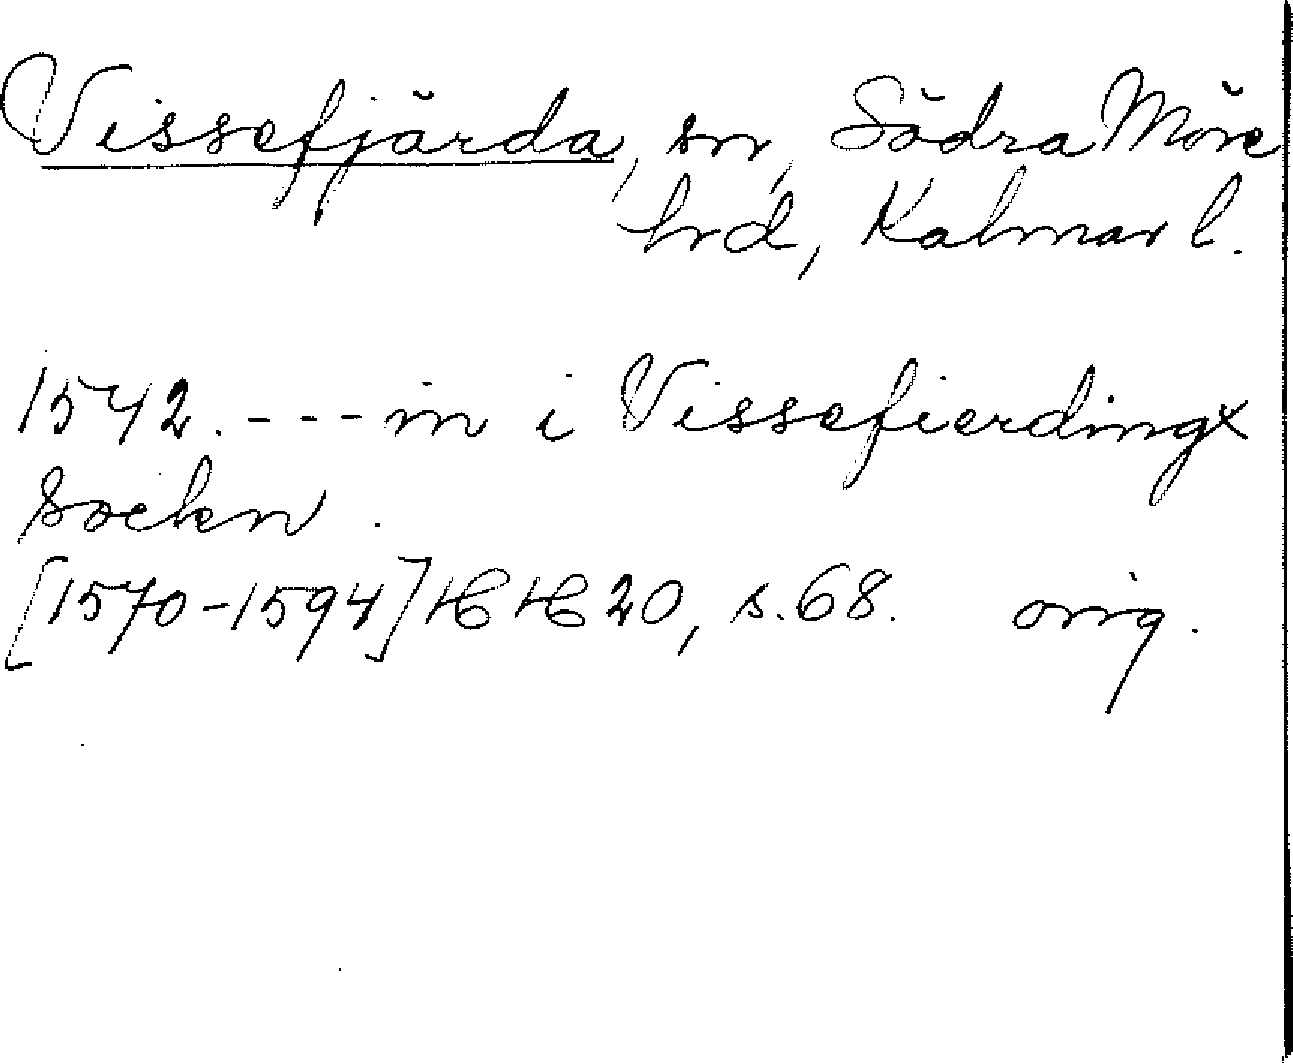 Vissefjärda, sn, Södra Möre
hrd, Kalmar l.
1542. - - - in i Vissefierdingx
Sockn.
[1570-1594] HH 20, s. 68. orig.